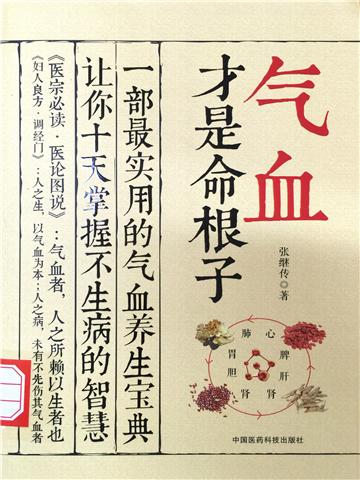 气血
才是命根子
张继传 著
一部最实用的气血养生宝典
让你十天掌握不生病的智慧
《医宗必读·医论图说》：气血者，人之所赖以生者也
《妇人良方·调经门》：人之生，以气血为本；人之病，未有不先伤其气血者
肺 心
胃 脾
胆 肝
肾 肾
中国医药科技出版社